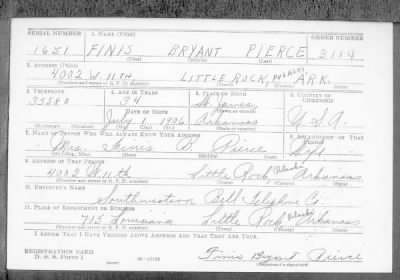 SERIAL NUMBER 1. NAME (Print) ORDER NUMBER
1651 FINIS BRYANT PIERCE 3114
(First) (Middle) (Last)
2. ADDRESS (Print)
4002 W. 11TH LITTLE ROCK, PULASKI ARK.
(Number and street or R. F. D. number) (Town) (County) (State)
3. TELEPHONE 4. AGE IN YEARS 5. PLACE OF BIRTH 6. COUNTRY OF CITIZENSHIP
34 St. James
DATE OF BIRTH
July 1 1906 Arkansas U.S.A.
(Mo.) (Day) (Yr.)
7. NAME OF PERSON WHO WILL ALWAYS KNOW YOUR ADDRESS 8. RELATIONSHIP OF THAT PERSON
Mrs. Finis B. Pierce Wife
(Mr., Mrs., Miss) (First) (Middle) (Last)
9. ADDRESS OF THAT PERSON
4002 W. 11th Little Rock Pulaski Arkansas
(Number and street or R. F. D. number) (Town) (County) (State)
10. EMPLOYER'S NAME
Southwestern Bell Telephone Co.
11. PLACE OF EMPLOYMENT OR BUSINESS
715 Louisiana Little Rock Pulaski Arkansas
(Number and street or R. F. D. number) (Town) (County) (State)
I AFFIRM THAT I HAVE VERIFIED ABOVE ANSWERS AND THAT THEY ARE TRUE.
REGISTRATION CARD
D. S. S. Form 1 Finis Bryant Pierce
(Registrant's signature)